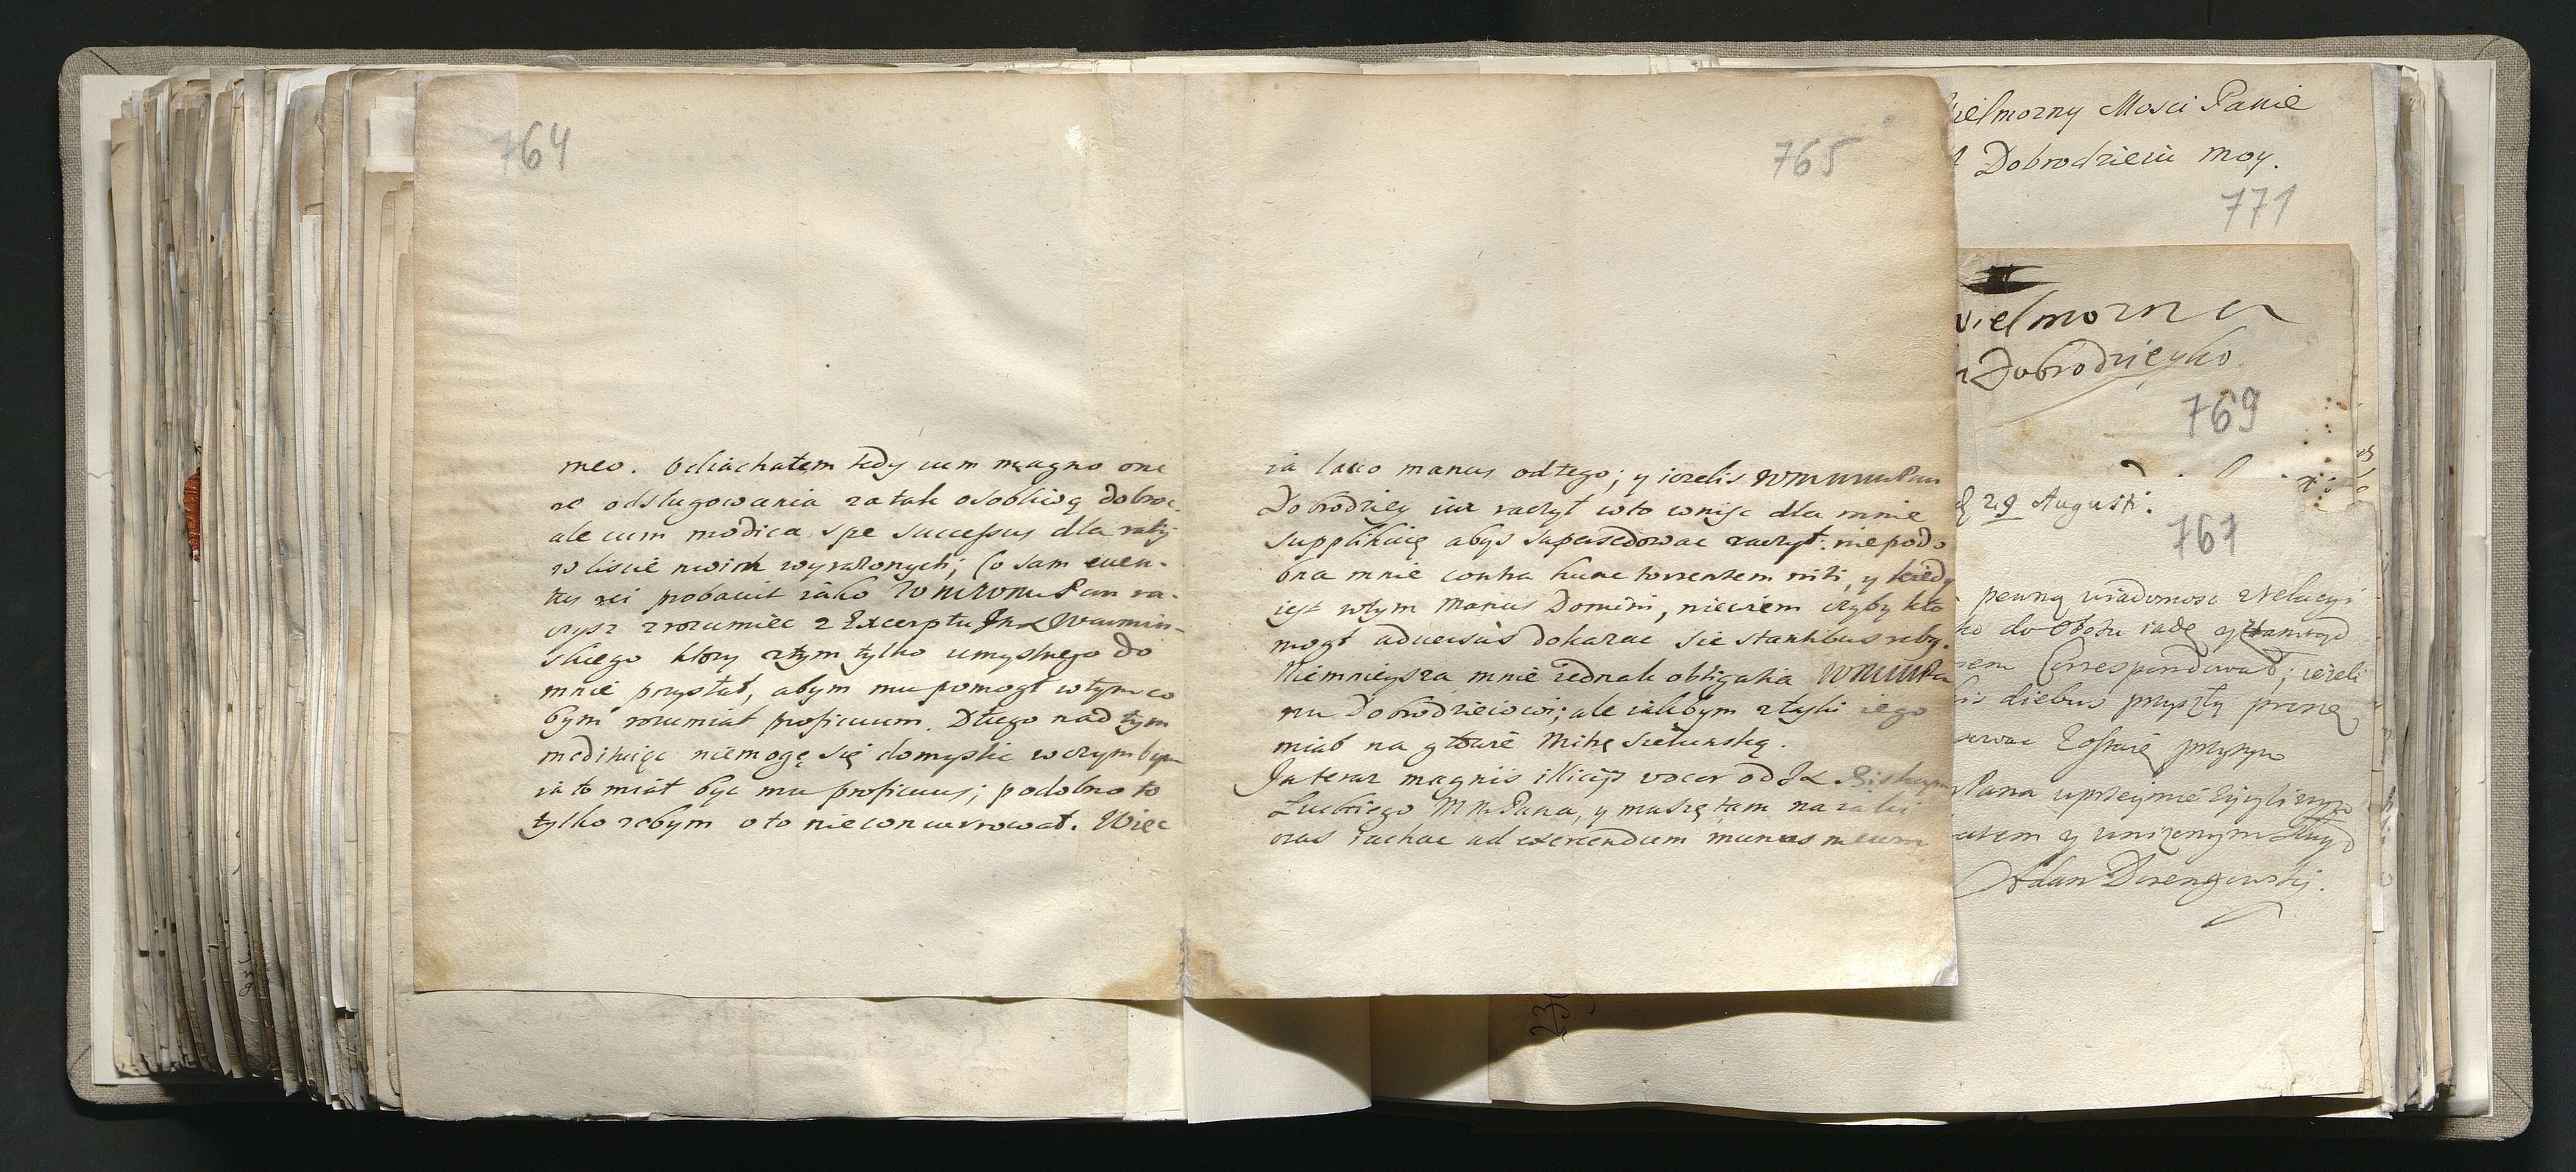 764
meo. Odiachałem tedy cum magno one
re odsługowania za tak osobliwą dobroc.
ale cum modica spe successus dla racij
w liscie moim wyrażonych; Co sam even-
tus rei probavit iako WMWMPan ra-
czysz zrozumiec z Excerptu
skiego ktory ztym tylko umyslnego do
mnie przysłał, abym mu pomogł w tym co
bym rozumiał proficuum. Długo nad tym
medituiąc niemogę się domyslic w czym bym
ia to miał byc mu proficuus; podobno to
tylko zebym o to nie concurrował. Więc
765
ia lavo manus od tego; y iezelis WMMMPan
Dobrodziey iuz raczył w to wnisc dla mnie
supplikuię abys supersedowac raczył: niepodo
bna mnie contra hunc torrentem niti, y kiedy
iest w tym manus Domini, niewiem czyby kto
mogł adversus dokazac sic stantibus reby.
Niemnieysza mnie iednak obligatia WMMMPa
nu Dobrodzieiowi; ale iakbym z łaski iego
miał na głowie Mitrę
Ja teraz magnis illicijs vocor od
Łuckiego MMPana, y muszę tam na iaki
czas iachac ad exercendum munus meum
ielmozny Mosci Panie
Dobrodzieiu moy.
771
wielmozna
Dobrodzieyko.
769
29 Augusti.
767
pewną wiadomosc z relacyi
do Obozu iadę y
Correspondował; iezeli
diebus przyszły proszę
Zostaię
Pana uprzeymie życzliwym
y unizonym sługą
Adam